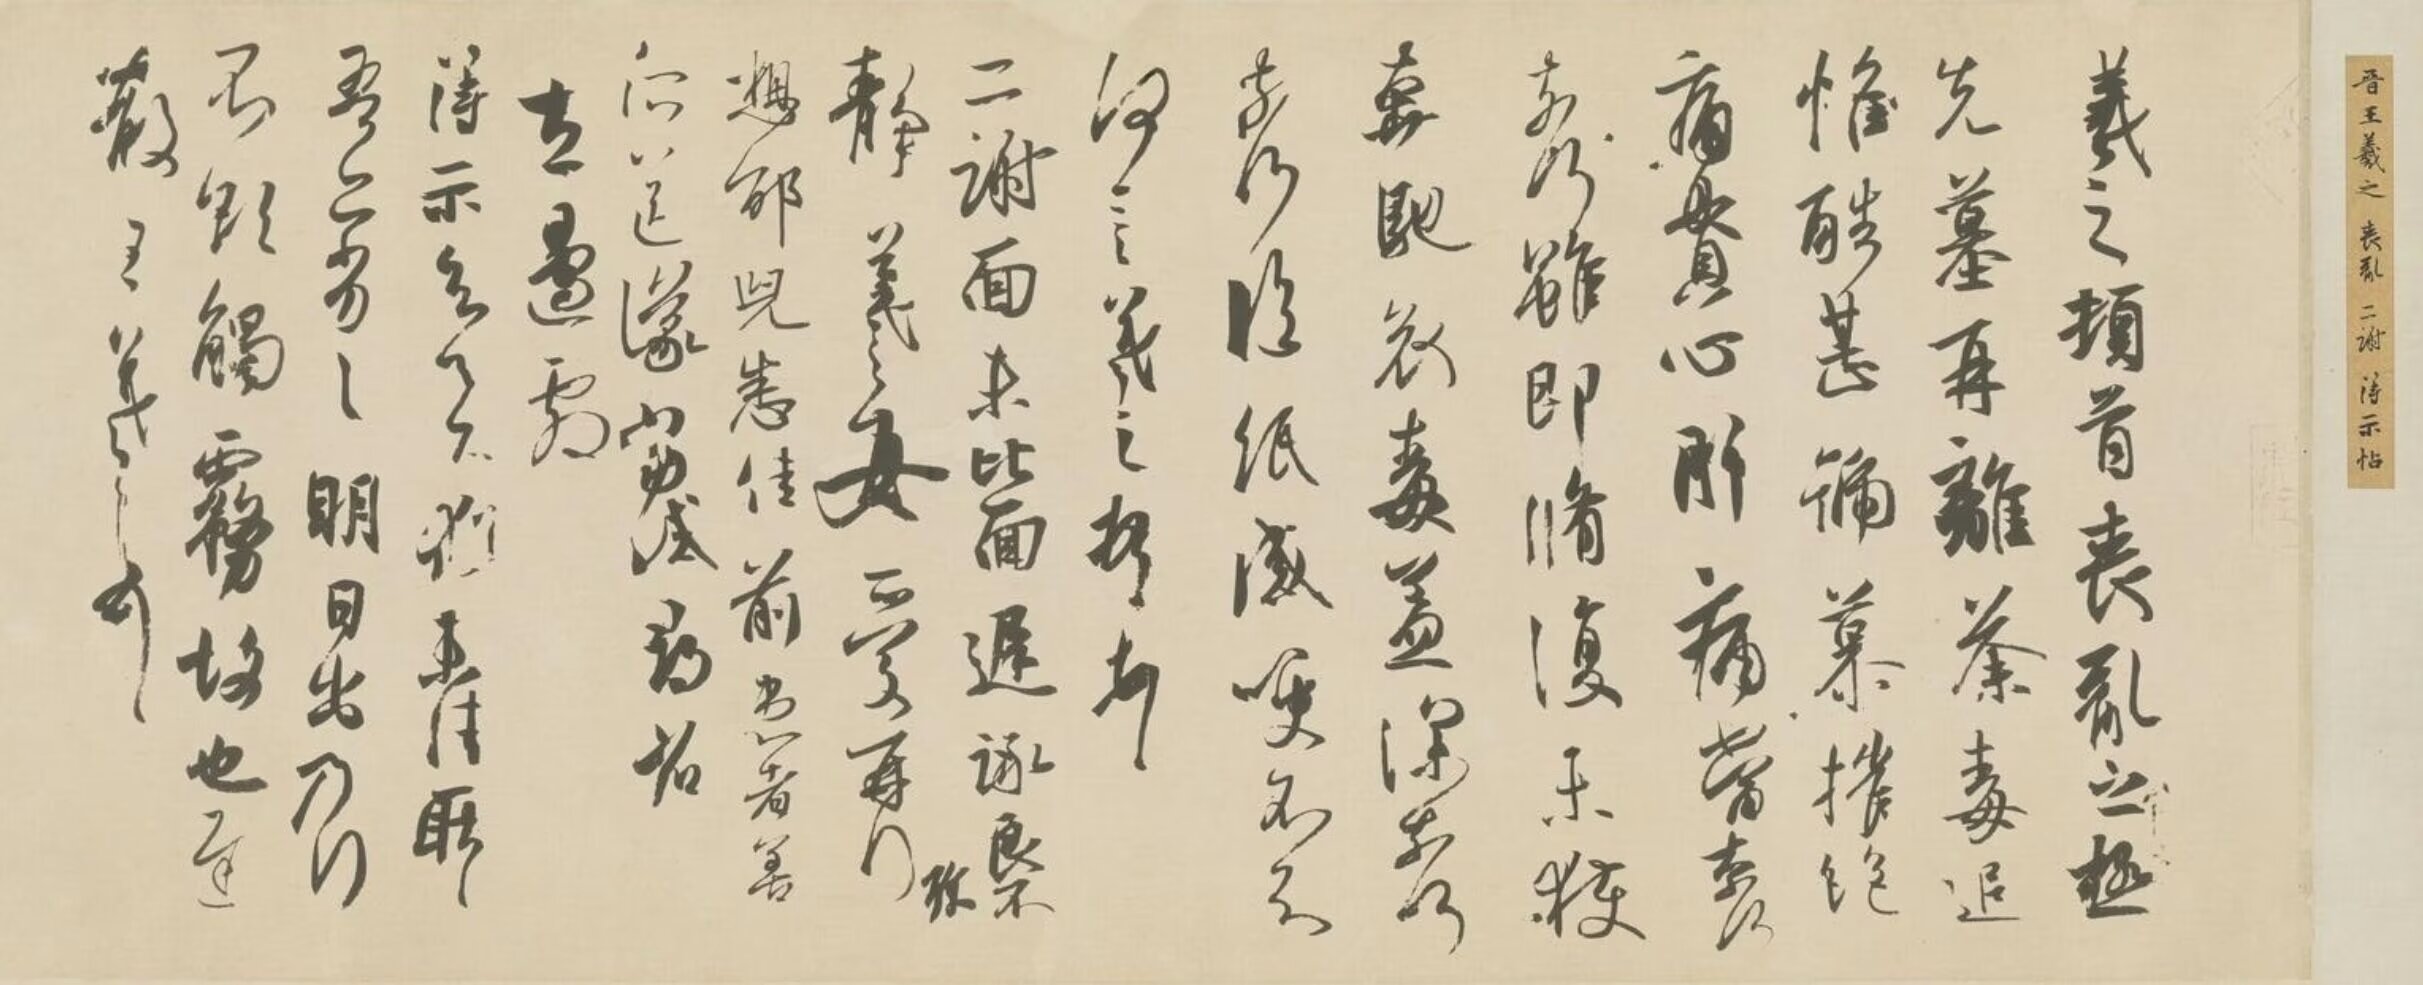 晋王羲之 喪亂 二謝 得示帖
羲之頓首喪亂之極
先墓再離荼毒追
惟酷甚號慕摧絕
痛貫心肝痛當奈何
奈何雖即脩復未獲
奔馳哀毒益深奈何
奈何臨紙感哽不知
何言羲之頓首頓首
二謝面未比面遲詠良不
弥
靜羲之女愛再拜
想邵兒悉佳前患者善
所送議當試尋省
左邊劇
得示知足下猶未佳耿耿
吾亦劣劣明日出乃行
不欲觸霧故也遲
散王羲之頓首